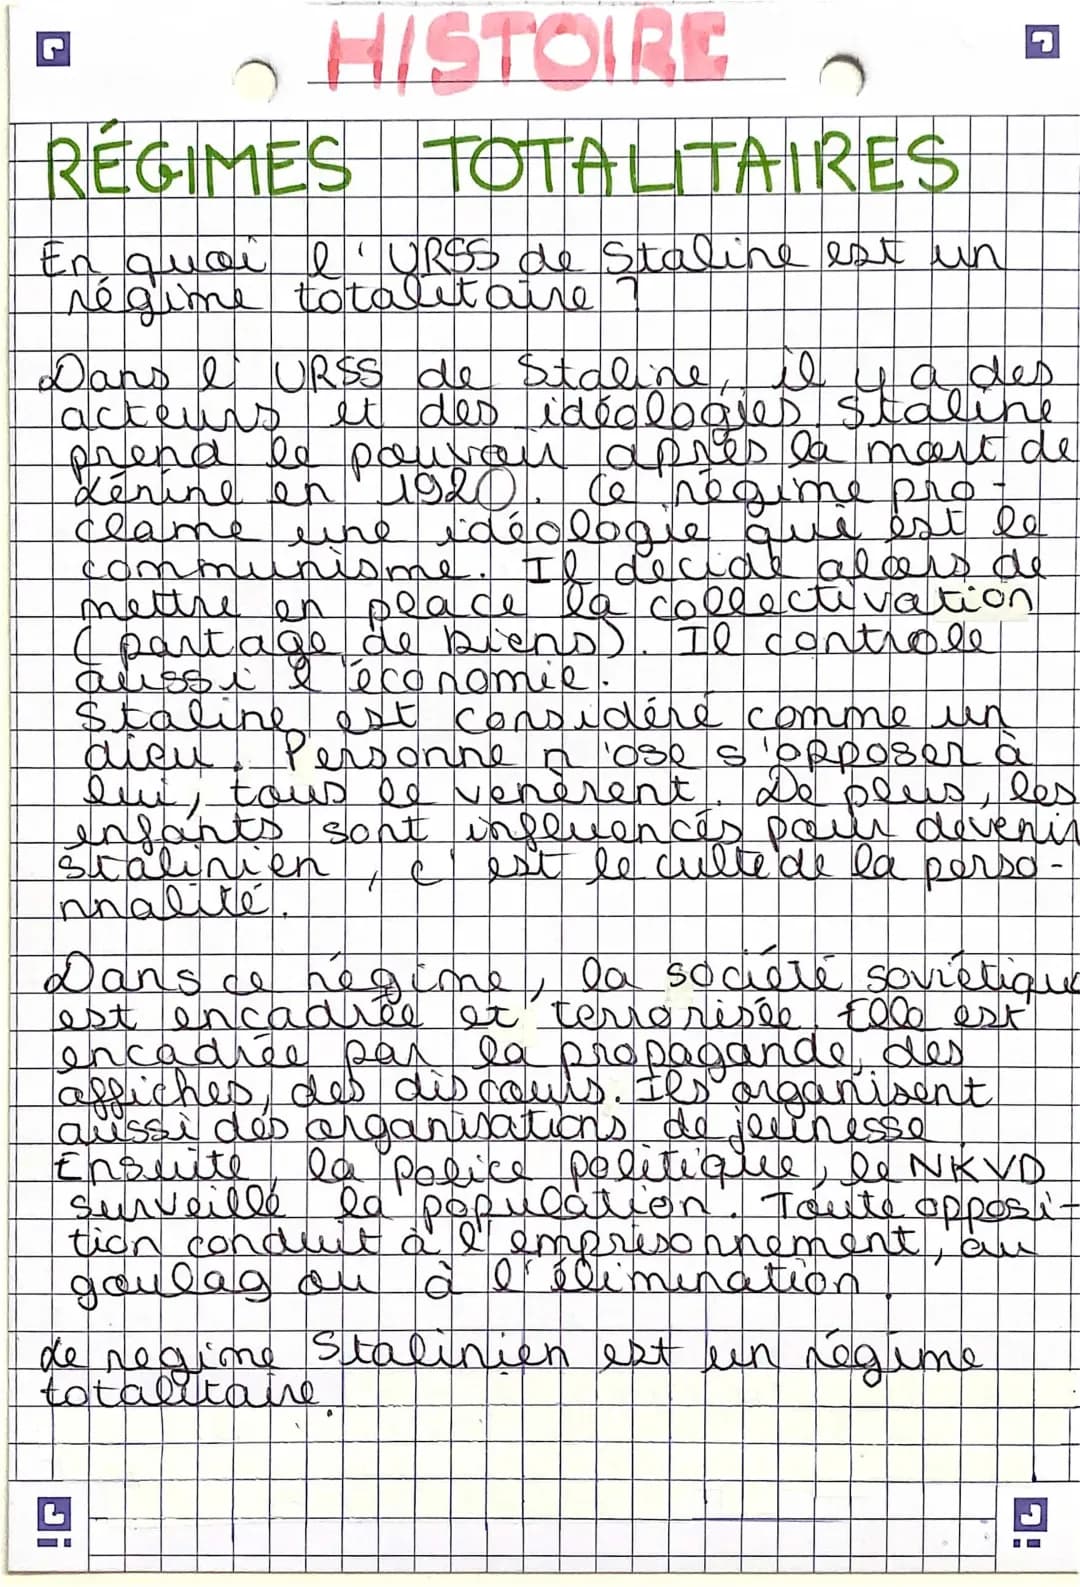 HISTOIRE
RÉGIMES TOTALITAIRES
En quoi l'URSS de Staline est un
régime totalitaire ?
Dans l'URSS de Staline, il y a des
acteurs et des idéologies. Staline
prend le pouvoir après la mort de
Lénine en 1920. Ce régime pro-
clame une idéologie qui est le
communisme. Il décide alors de
mettre en place la collectivation
(partage de biens). Il controle
aussi l'économie.
Staline est considéré comme un
dieu. Personne n'ose s'opposer à
lui, tous le venèrent. De plus, les
enfants sont influencés pour devenir
stalinien, c'est le culte de la perso-
nnalité.
Dans ce régime, la société soviétique
est encadrée et terrorisée. Elle est
encadrée par la propagande, des
affiches, des discours. Ils organisent
aussi des organisations de jeunesse
Ensuite, la police politique, le NKVD
surveille la population. Toute opposi-
tion conduit à l'emprisonnement, au
goulag ou à l'élimination.
Le regime Stalinien est un régime
totalitaire.